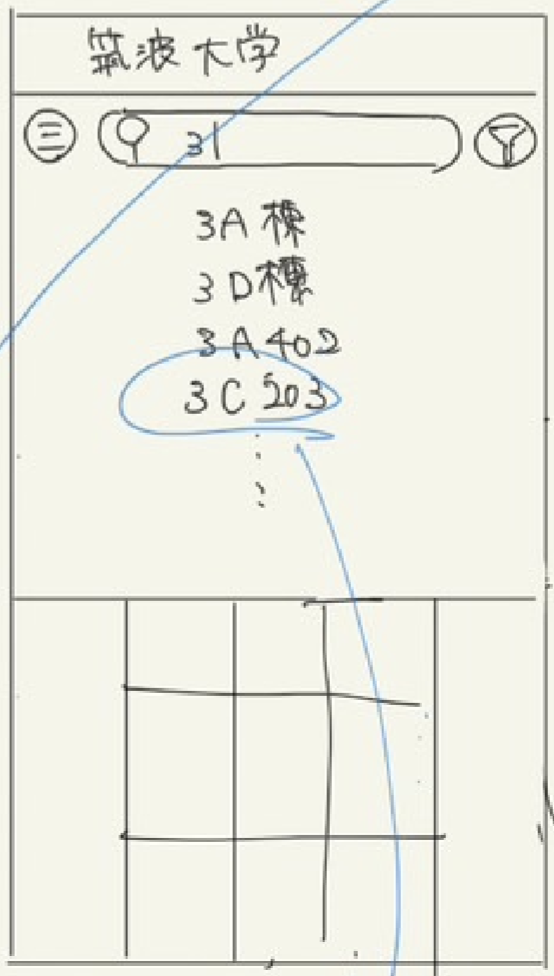 筑波大学
3
3A棟
3D棟
3A402
3C203